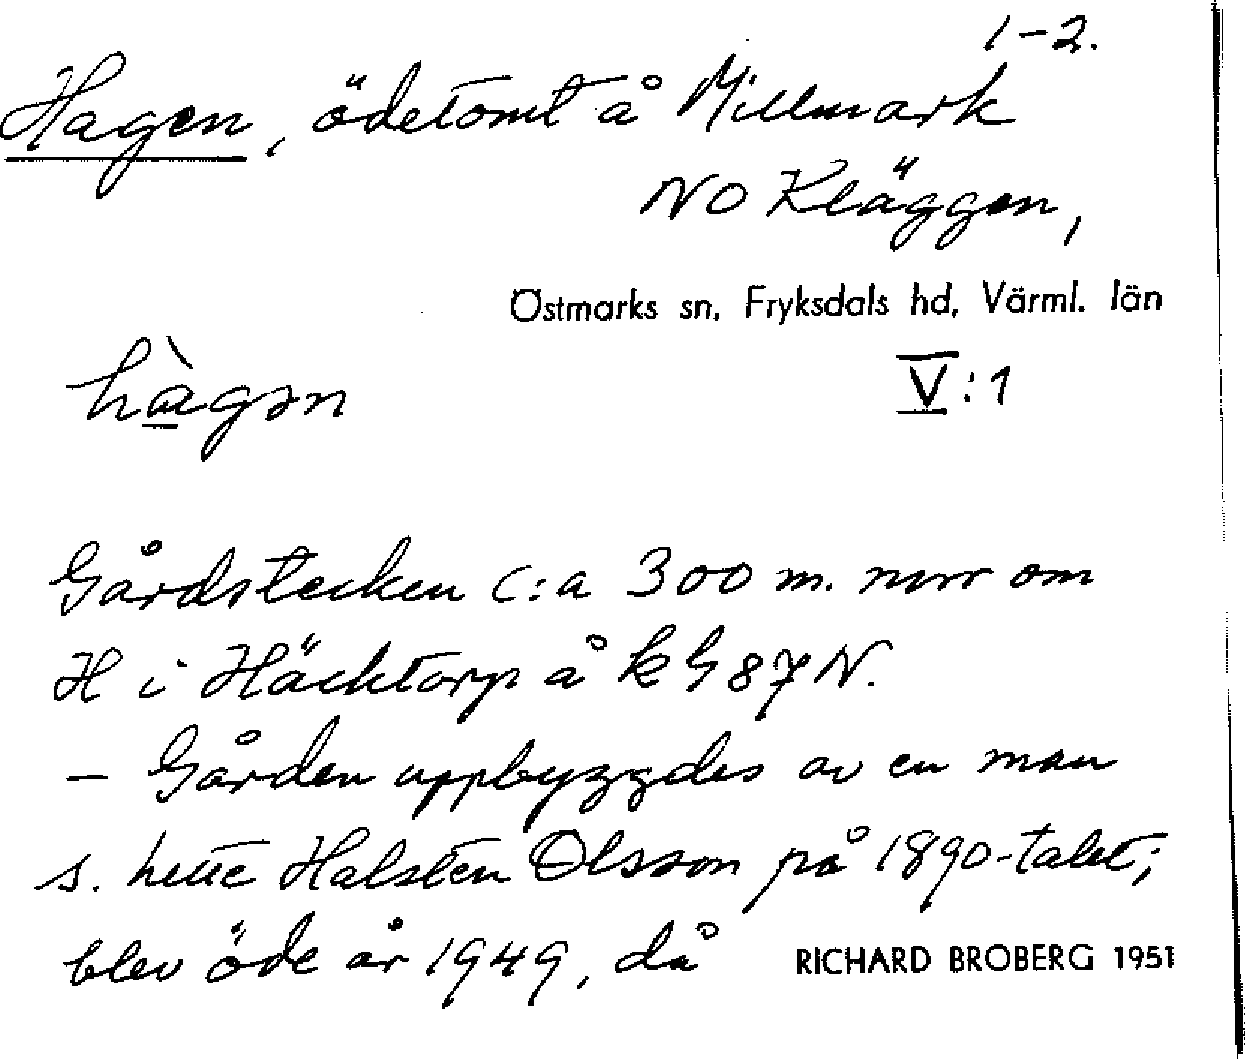 1-2.
Hagen, ödetomt å Millmark
NO Kläggen,
Östmarks sn, Fryksdals hd, Värml. län
hàgən V:1
Gårdstecken c:a 300 m. norr om
H i Häcktorp å k G 87 N.
- Gården uppbyggdes av en man
s. hette Halsten Olsson på 1890-talet;
blev öde år 1949, då RICHARD BROBERG 1951